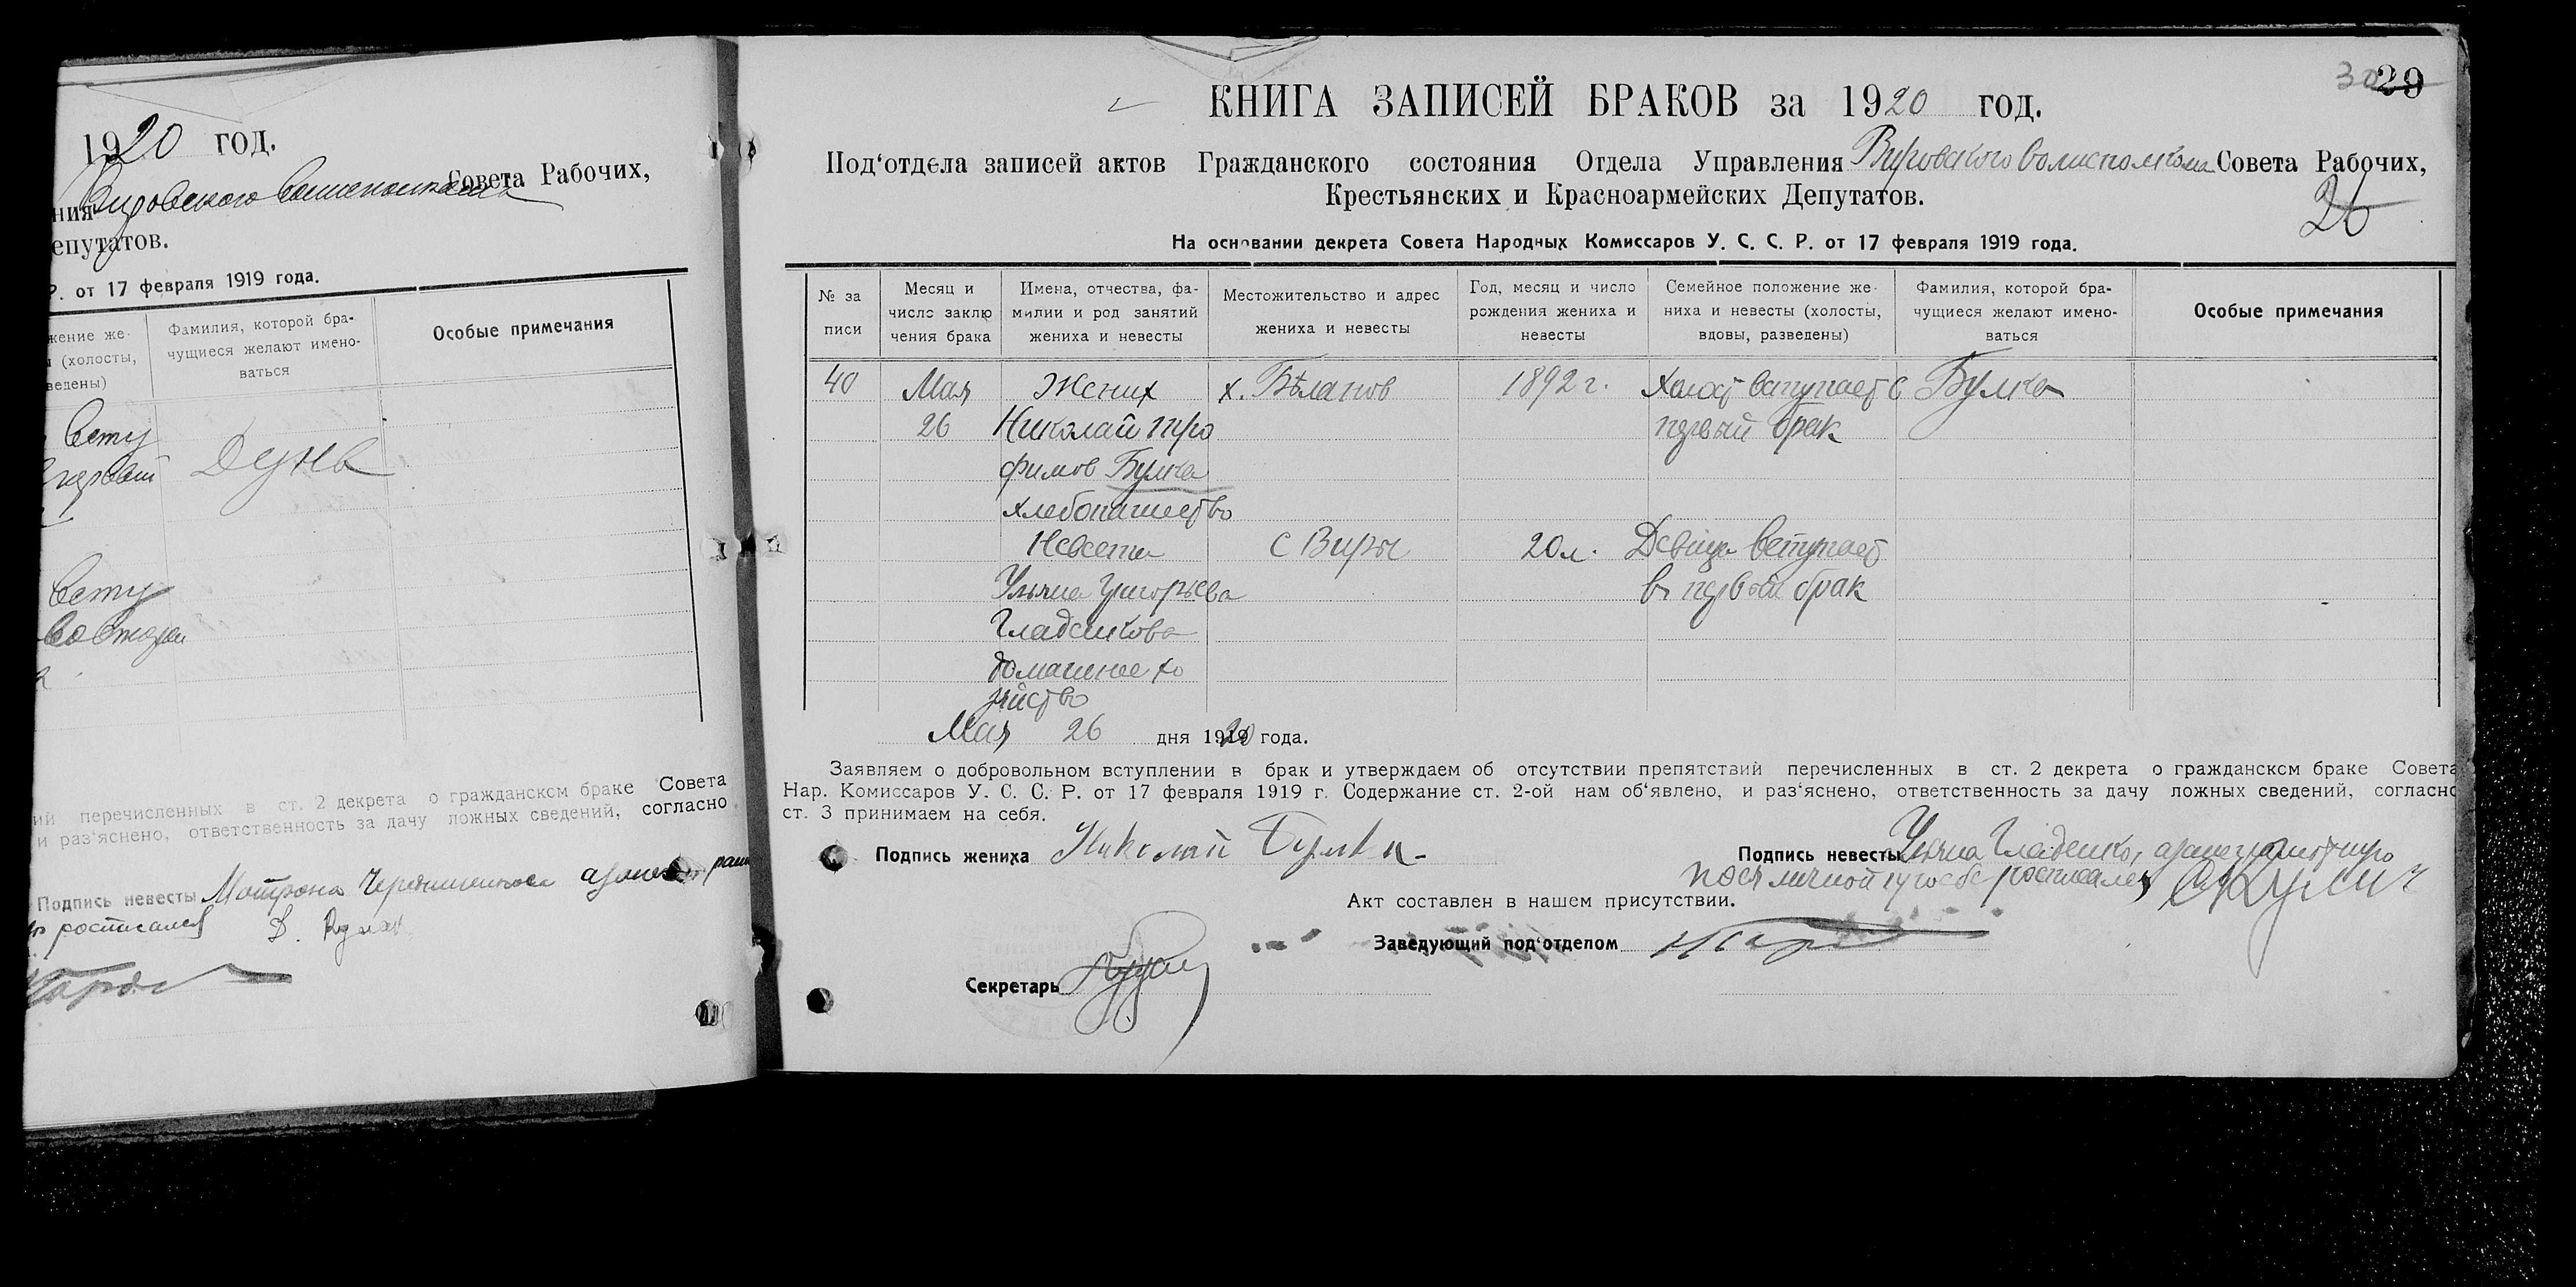 1920 год.
ния Вировского Волисполкома Совета Рабочих,
епутатов.
Р. от 17 февраля 1919 года.
жение же-
ы (холосты,
ведены)
Фамилия, которой бра-
чущиеся желают имено-
ваться
Особые примечания
Всту
первый
Дунь
Всту
во второй
ий перечисленных в ст. 2 декрета о гражданском браке Совета
и раз‘яснено, ответственность за дачу ложных сведений, согласно
Подпись невесты Мотрона
росписался Д.
30 29
КНИГА ЗАПИСЕЙ БРАКОВ за 1920 год.
Под‘отдела записей актов Гражданского состояния Отдела Управления Вировского Волисполкома Совета Рабочих,
Крестьянских и Красноармейских Депутатов.
26
На основании декрета Совета Народных Комиссаров У. С. С. Р. от 17 февраля 1919 года.
№ за
писи
Месяц и
число заклю
чения брака
Имена, отчества, фа-
милии и род занятий
жениха и невесты
Местожительство и адрес
жениха и невесты
Год, месяц и число
рождения жениха и
невесты
Семейное положение же-
ниха и невесты (холосты,
вдовы, разведены)
Фамилия, которой бра-
чущиеся желают имено-
ваться
Особые примечания
40 Мая Жених х. Бѣланов 1892 г. Холост вступает в Булка
26 Николай Тро первый брак
фимов Булка
хлебопашество
Невеста С Виры 20 л. Девица вступает
Ульяна Григорьева в первый брак
Гладенкова
домашнее хо
зяйство
Мая 26 дня 1920 года.
Заявляем о добровольном вступлении в брак и утверждаем об отсутствии препятствий перечисленных в ст. 2 декрета о гражданском браке Совета
Нар. Комиссаров У. С. С. Р. от 17 февраля 1919 г. Содержание ст. 2-ой нам об‘явлено, и раз‘яснено, ответственность за дачу ложных сведений, согласно
ст. 3 принимаем на себя.
Подпись жениха Николай Булка
Подпись невесты Ульяна Гладенко, а за неграмотную
по ея личной просьбе росписался
Акт составлен в нашем присутствии.
Заведующий под‘отделом
Секретарь